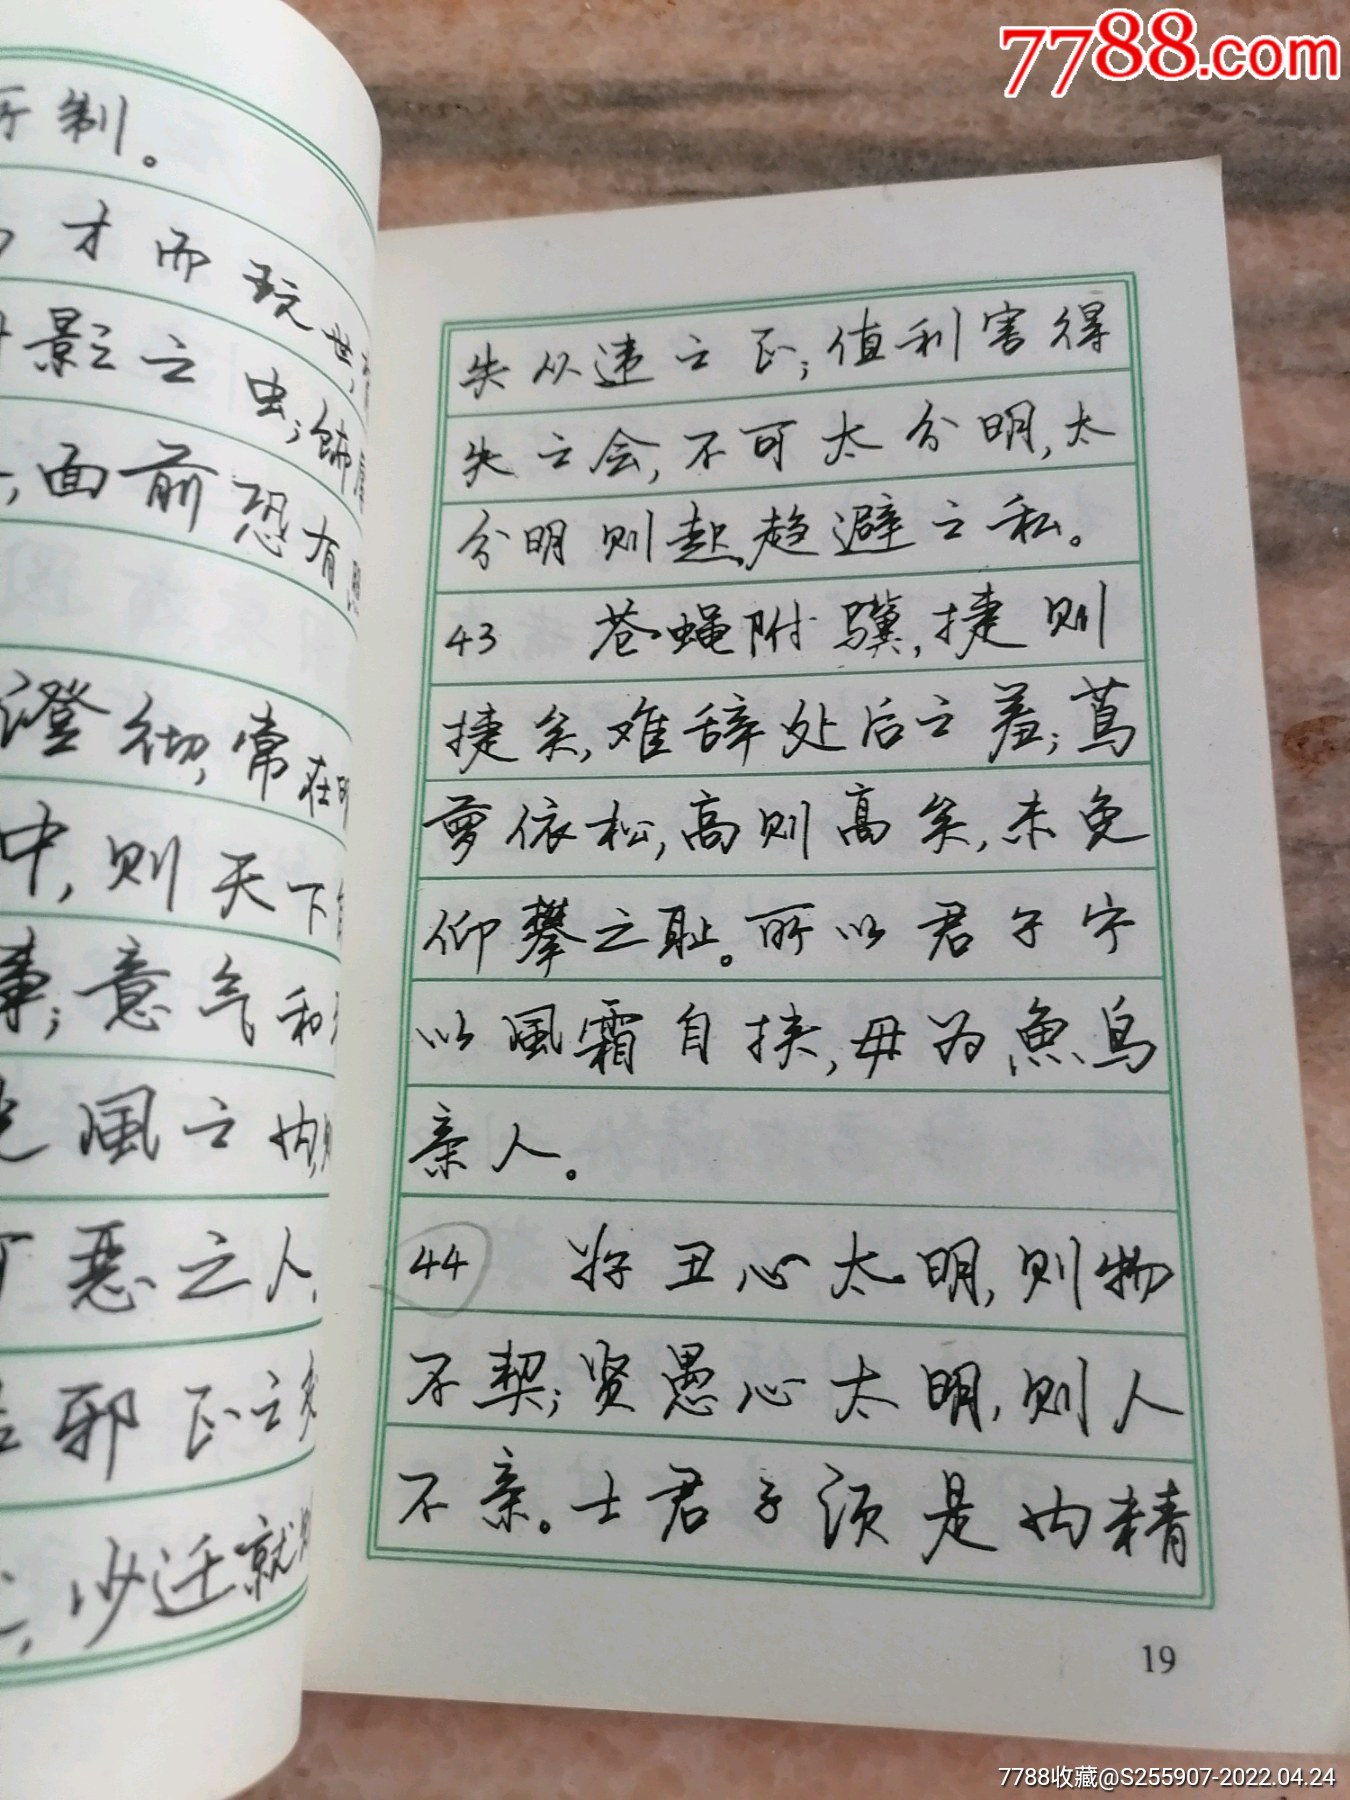 7788.com
所制。
才而玩世,
影之虫;饰
,面前恐有
澄彻,常在明
中,则天下
事;意气和
光风之内
可恶之人,
邪正之
,少迁就
失从违之正;值利害得
失之会,不可太分明,太
分明则起趋避之私。
43 苍蝇附骥,捷则
捷矣,难辞处后之羞;茑
萝依松,高则高矣,未免
仰攀之耻。所以君子宁
以風霜自挟,毋为魚鸟
亲人。
44 好丑心太明,则物
不契;贤愚心太明,则人
不亲。士君子须是内精
19
7788收藏@S255907-2022.04.24